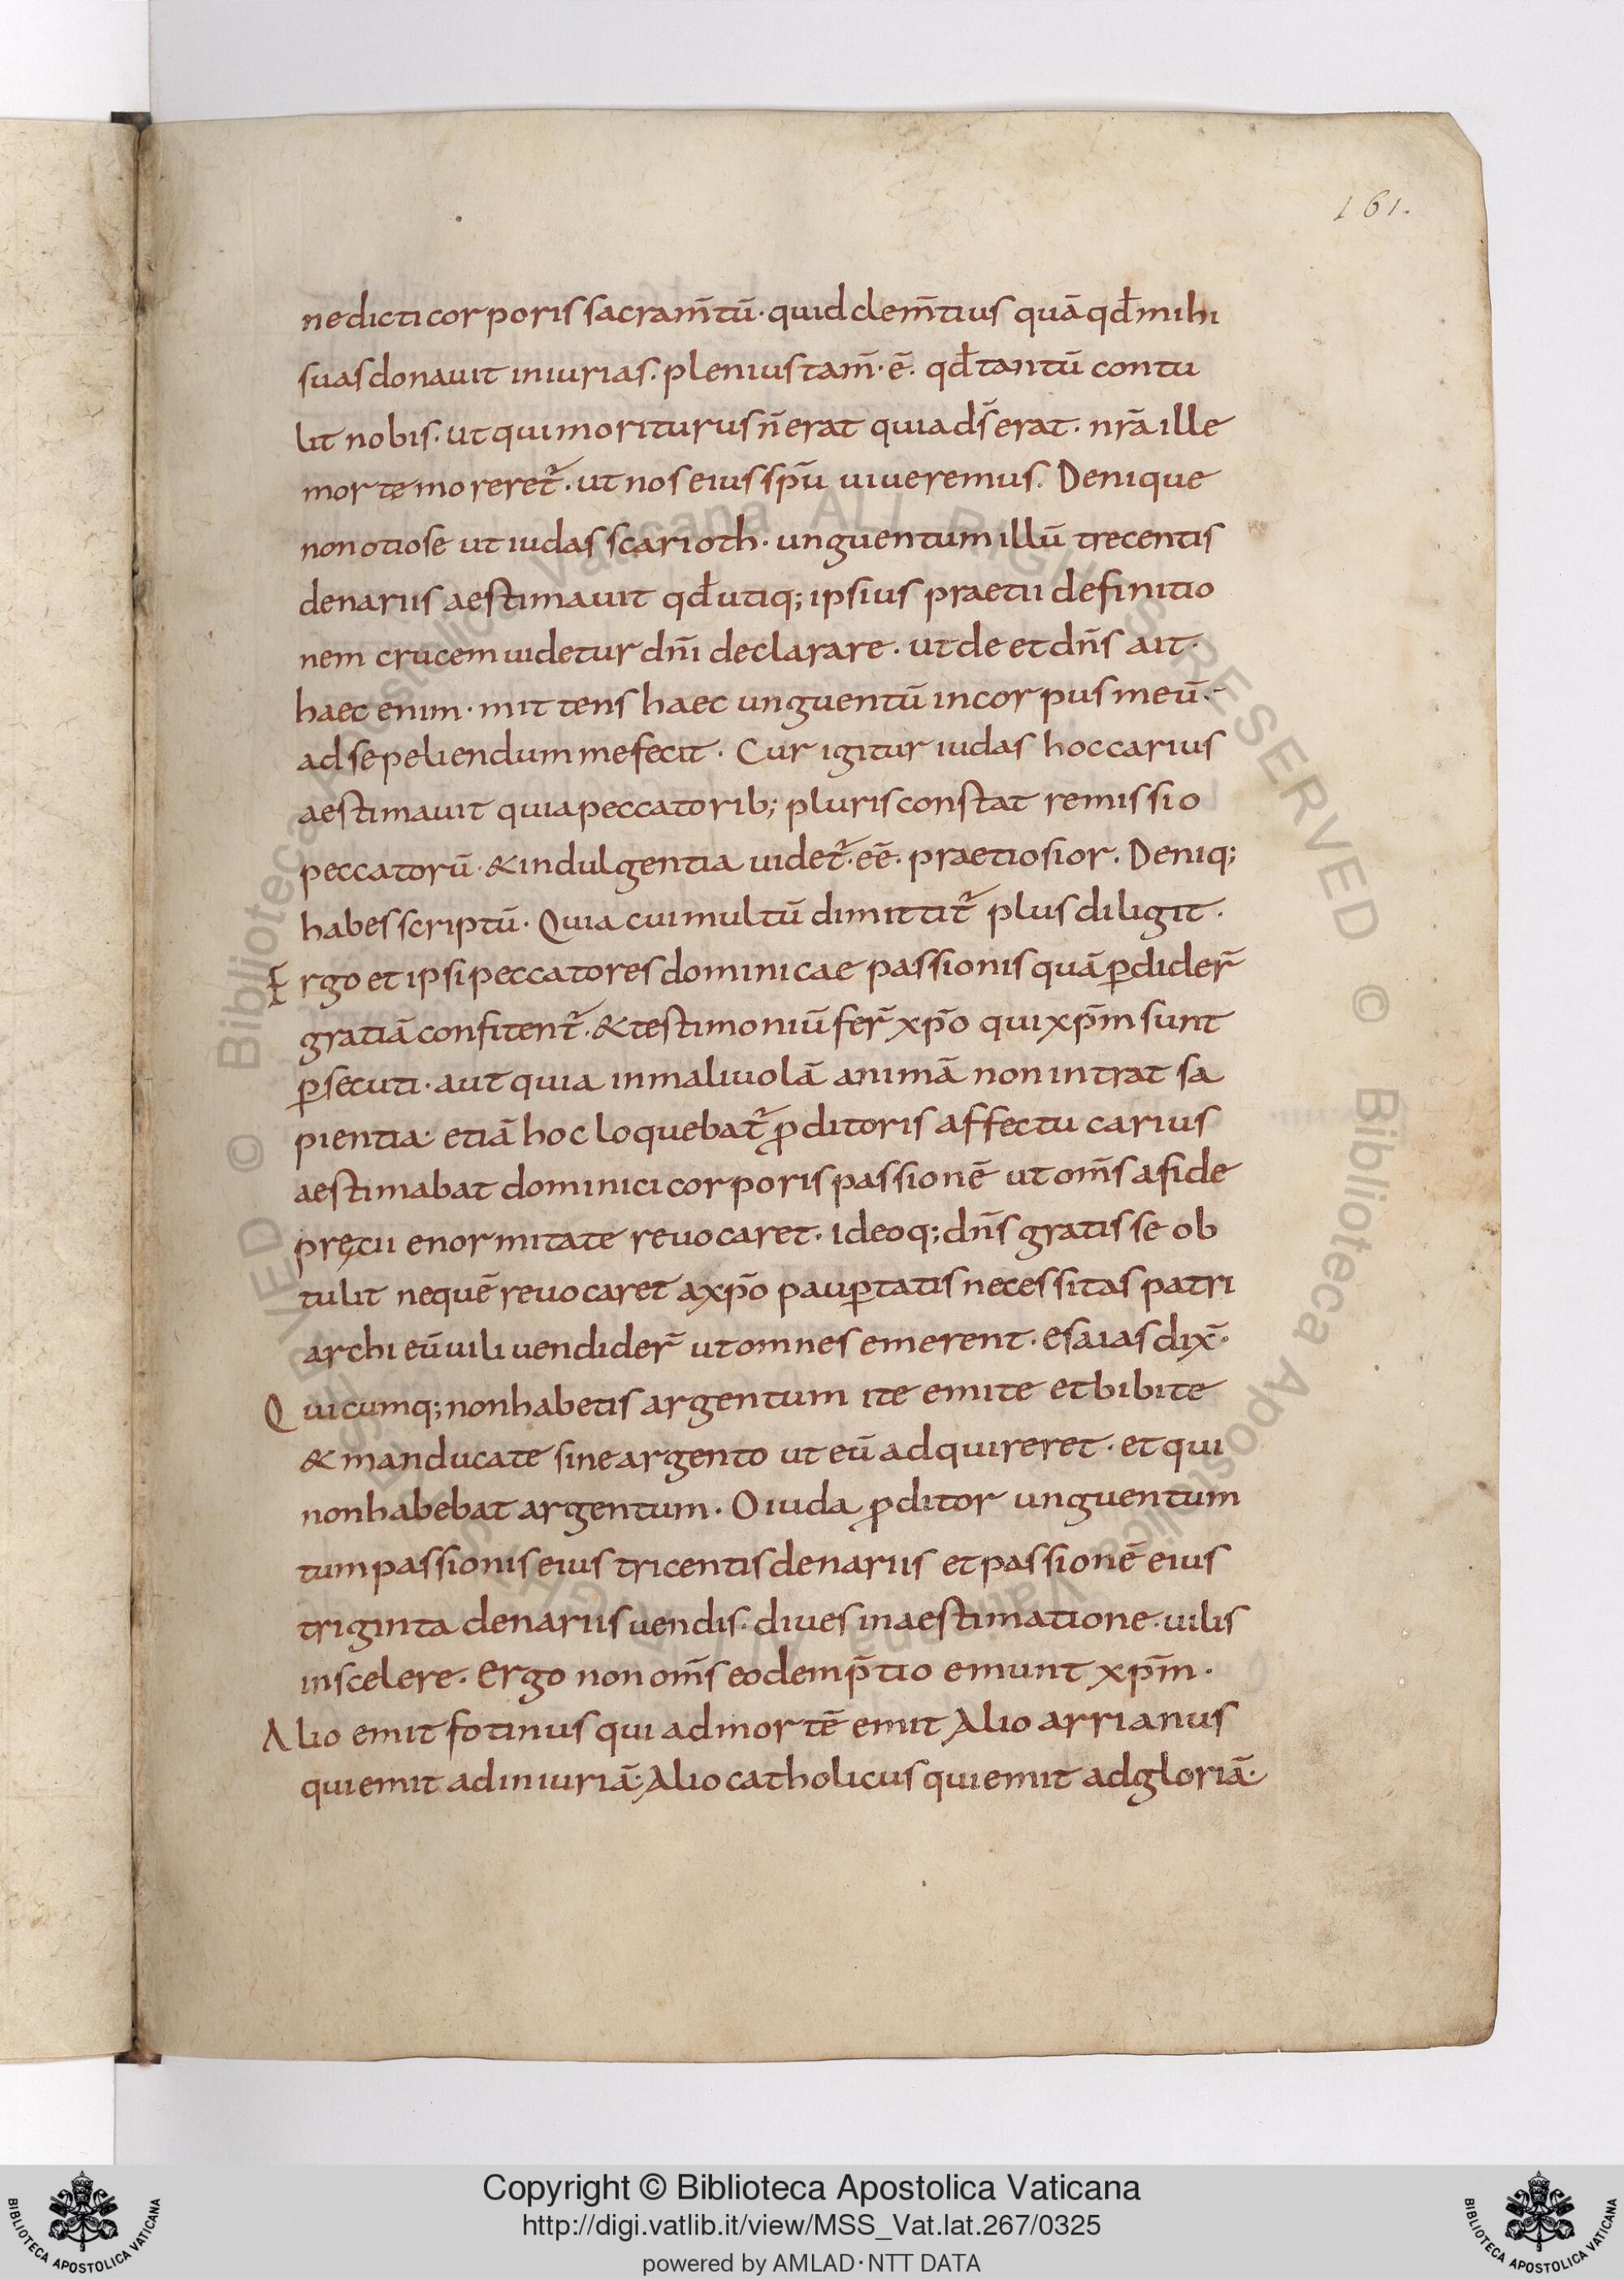 161.
nedicti corporis sacram̄tū· quid clem̄tius quā qđ mihi
suas donauit iniurias. plenius tam̄· ē. qđ tantū contu
lit nobis· ut qui moriturus n̄ erat quia d̄s erat· nr̄a ille
morte moreret᷑· ut nos eius sp̄u uiueremus. Denique
non otiose ut iudas scarioth· unguentum illū trecentis
denariis aestimauit qđ utiq; ipsius praetii definitio
nem crucem uidetur dn̄i declarare· ut de et dn̄s ait·
haec enim· mittens haec unguentū in corpus meū·
ad sepeliendum me fecit· Cur igitur iudas hoc carius
aestimauit quia peccatorib; pluris constat remissio
peccatorū· & indulgentia uidet᷑· eē· praetiosior. Deniq;
habes scriptū· Quia cui multū dimittit᷑ plus diligit·
Ergo et ipsi peccatores dominicae passionis quā ꝑdider̄
gratiā confitent᷑· & testimoniū fer̄ xp̄o qui xp̄m sunt
ꝑsecuti· aut quia in maliuolā animā non intrat sa
pientia· etiā hoc loquebat᷑ ꝓditoris affectu carius
aestimabat dominici corporis passionē ut om̄s a fide
pręcii enormitate reuocaret· ideoq; dn̄s gratis se ob
tulit ne quē reuocaret a xp̄o pauꝑtatis necessitas patri
archi eū uili uendider̄ ut omnes emerent· esaias dix̄·
Quicumq; non habetis argentum ite emite et bibite
& manducate sine argento ut eū adquireret· et qui
non habebat argentum· O iuda ꝓditor unguentum
tum passionis eius tricentis denariis et passionē eius
triginta denariis uendis· diues in aestimatione· uilis
in scelere· Ergo non om̄s eodem p̄tio emunt xp̄m·
Alio emit fotinus qui ad mortē emit Alio arrianus
qui emit ad iniuriā· Alio catholicus qui emit ad gloriā·
Copyright © Biblioteca Apostolica Vaticana
http://digi.vatlib.it/view/MSS_Vat.lat.267/0325
powered by AMLAD·NTT DATA
BIBLIOTECA APOSTOLICA VATICANA
BIBLIOTECA APOSTOLICA VATICANA